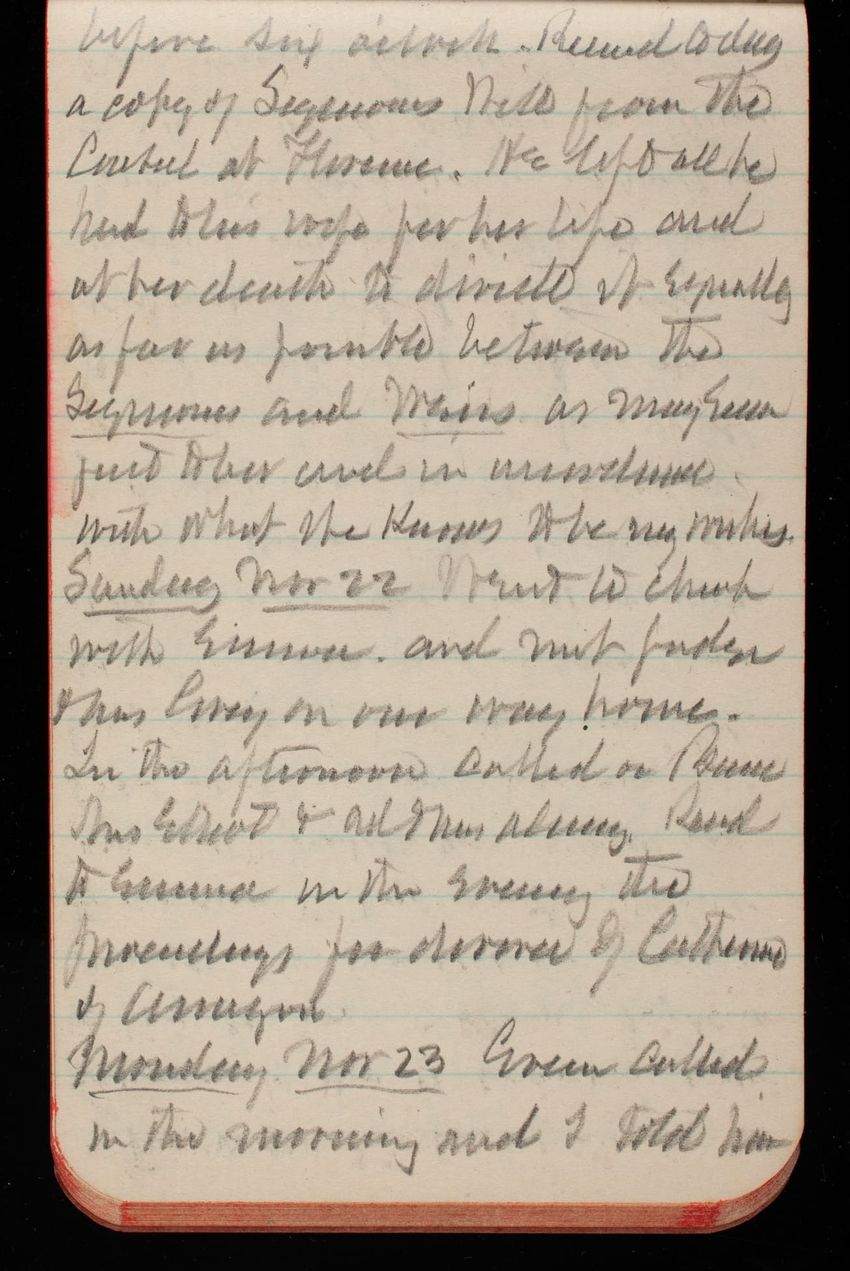 before six o'clock. Received today
a copy of Seymours Will from the
Consul at Florence. He left all he
had to his wife for her life and
at her death to divide it Equally
as far as possible between the
Seymours and Weirs as may seem
just to her and in accordance
with what she Knows to be my wishes.
Sunday Nov 22 Went to church
with Emma. and met
Mrs on our way home.
In the afternoon called on
Mrs Elliot & Read
to Emma in the Evening the
proceedings for divorce of Catherine
of Arragon
Monday Nov 23 Green called
in the morning and I told him